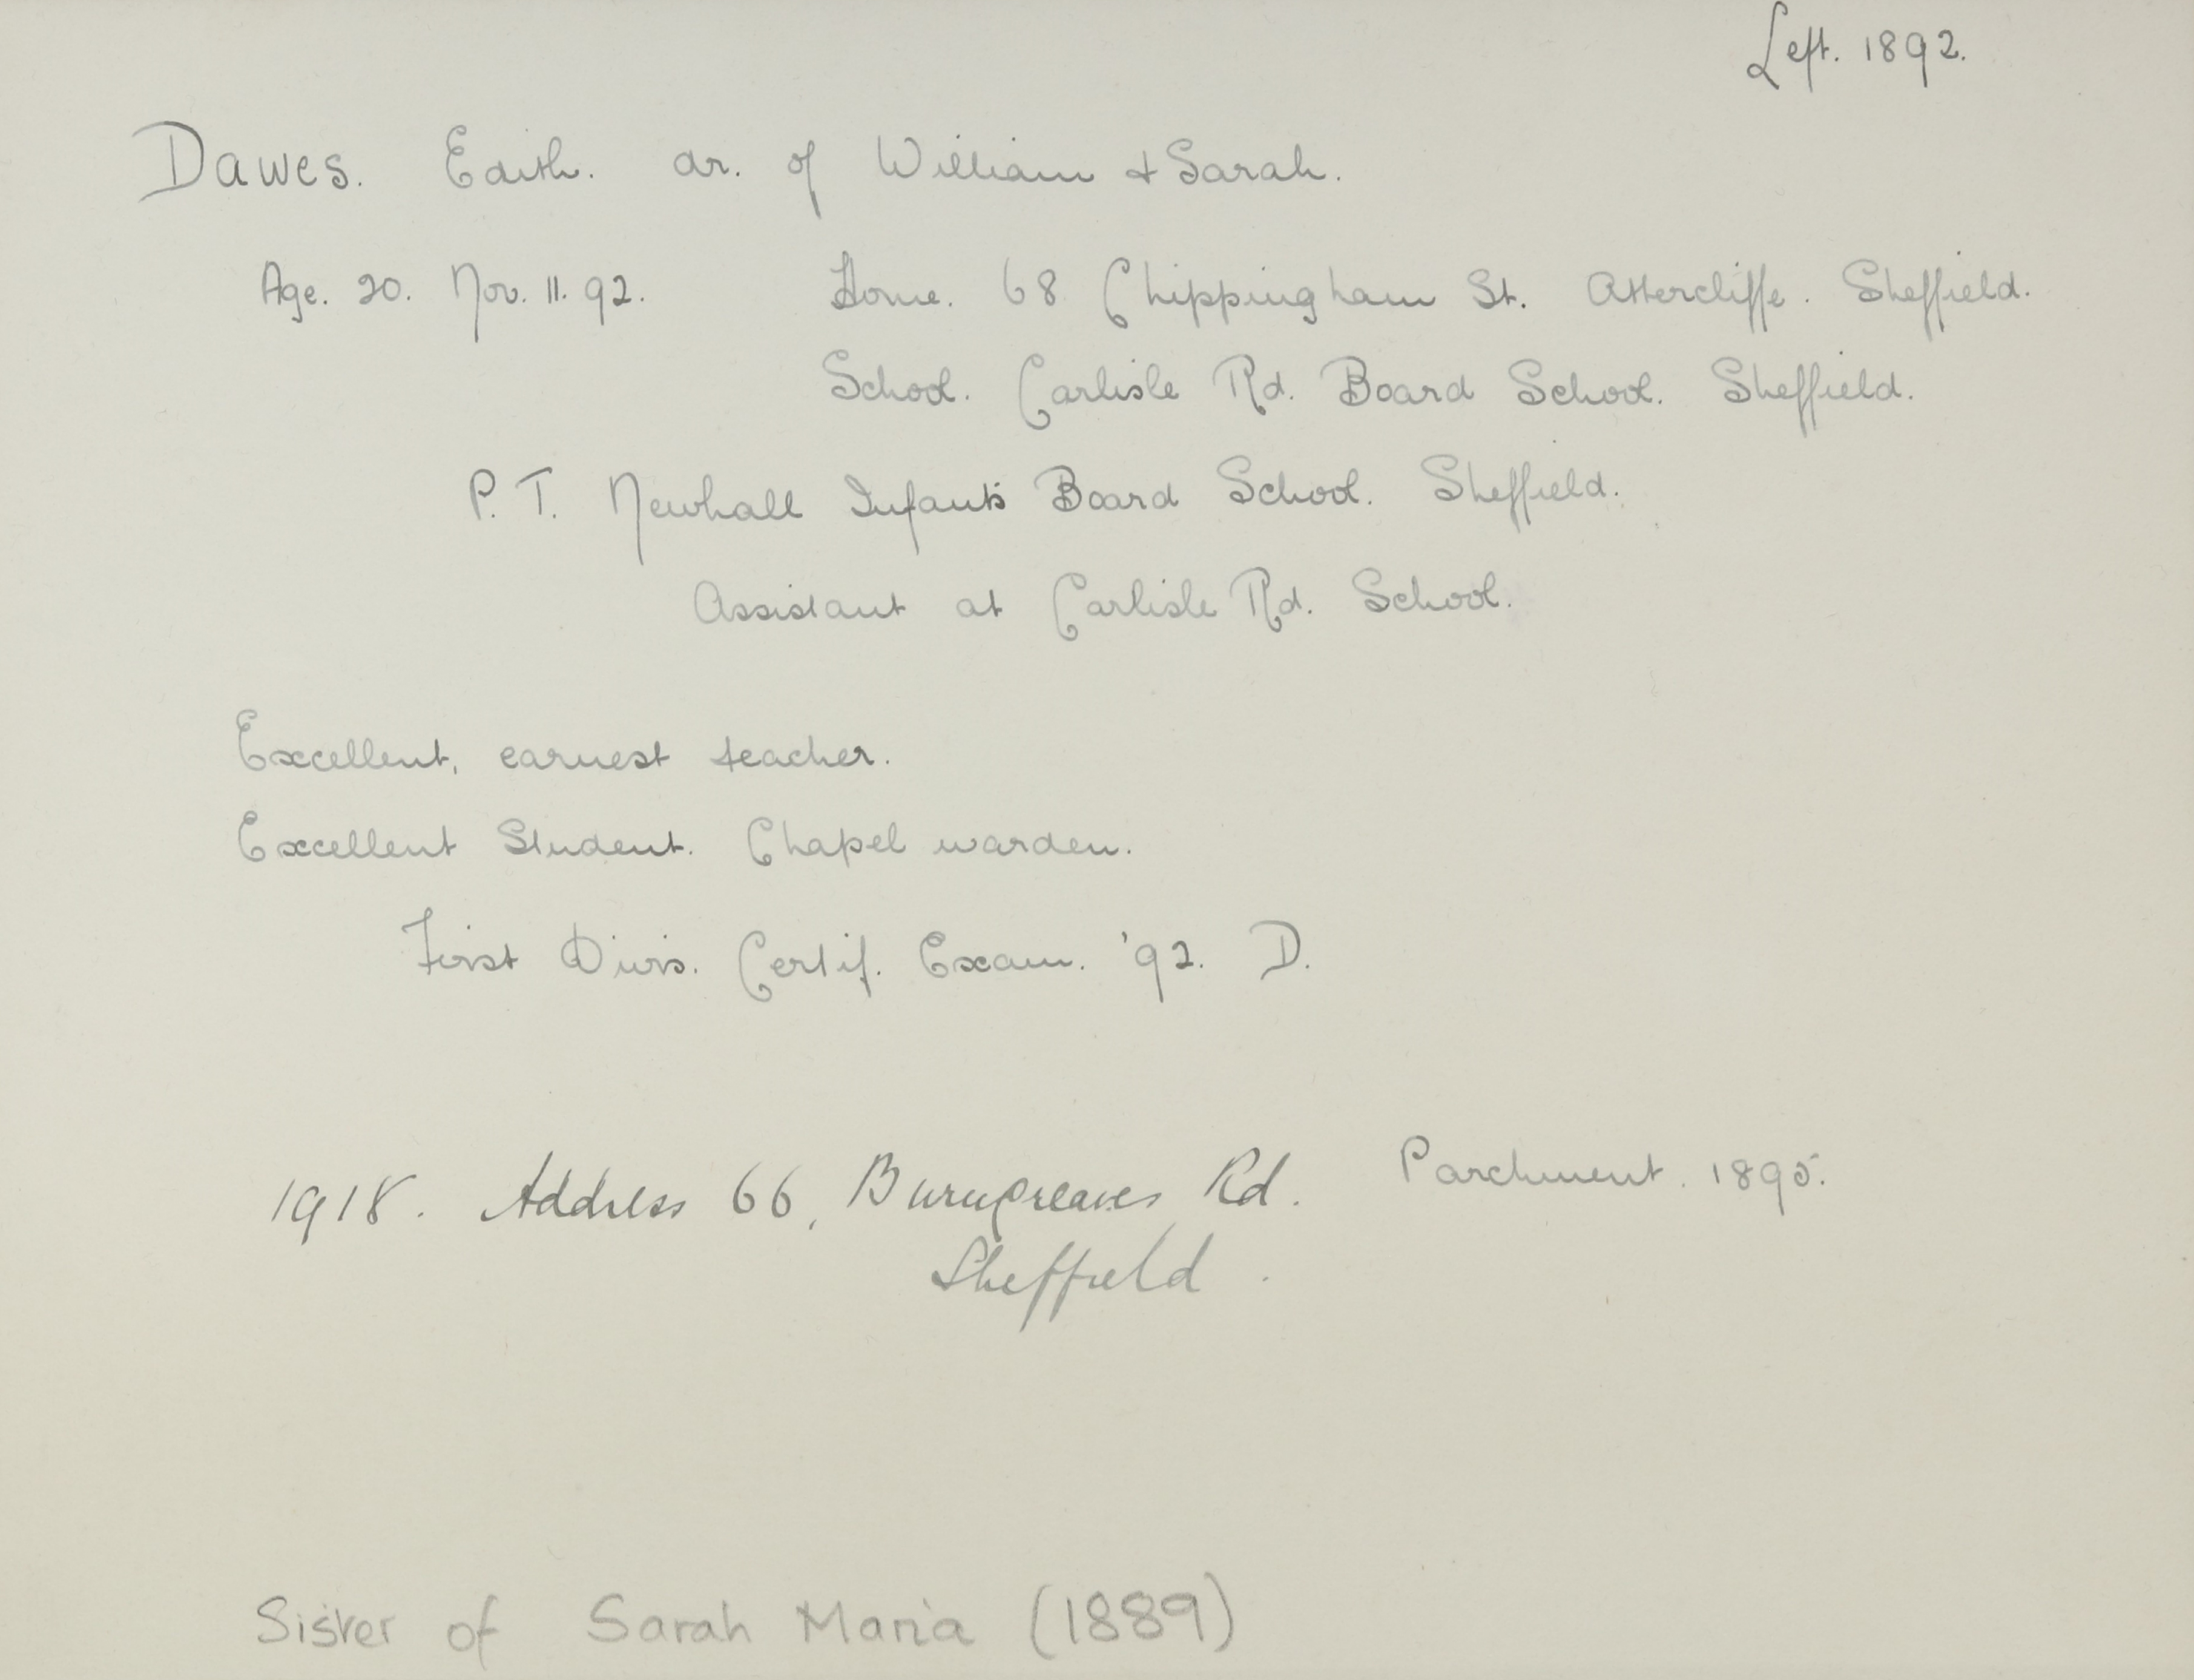 Left. 1892.
Dawes. Edith. dr. of William & Sarah.
Age. 20. Nov. 11. 92. Home. 68 Chippingham St. Attercliffe. Sheffield.
School. Carlisle Rd. Board School. Sheffield.
P. T. Newhall Infants Board School. Sheffield.
Assistant at Carlisle Rd. School.
Excellent, earnest teacher.
Excellent Student. Chapel warden.
First Divis. Certif. Exam. '92. D.
1918. Address 66, Burngreaves Rd. Parchment. 1895.
Sheffield.
Sister of Sarah Maria (1889)